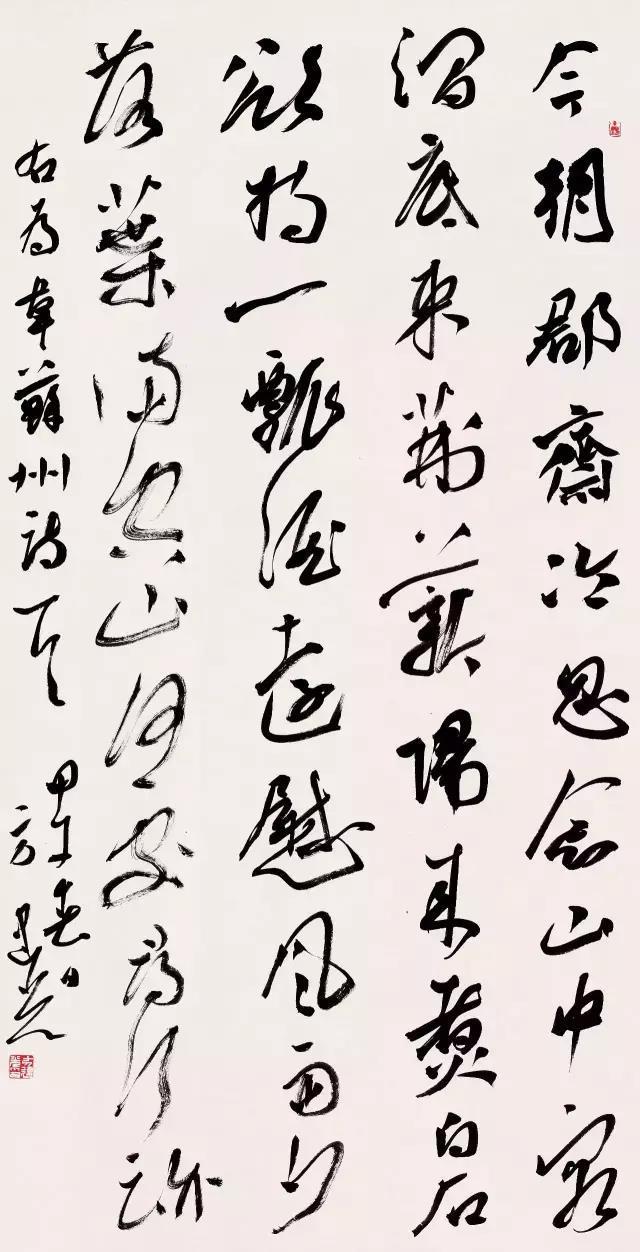 今朝郡齋冷忽念山中客
澗底束荊薪歸來煑白石
欲持一瓢酒遠慰風雨夕
落葉滿空山何處尋行跡
右為韋蘇州詩
甲午春日